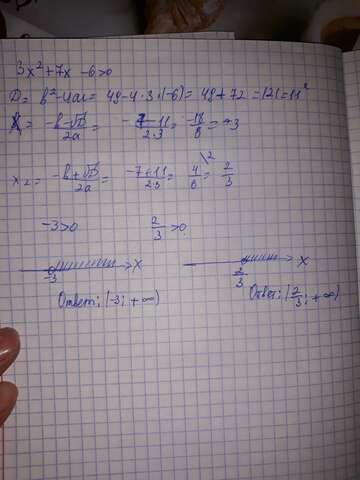 3x²+7x -6>0
D= b²-4ac= 49-4·3·(-6)= 49+72 =121=11²
X₁= -b-√D/2a= -7-11/2·3= -18/6= -3
x₂= -b+√D/2a= -7+11/2·3= 4/6 \2= 2/3
-3>0 2/3>0
-3 X 2/3 X
Ответ: (-3; +∞) Ответ: (2/3; +∞)